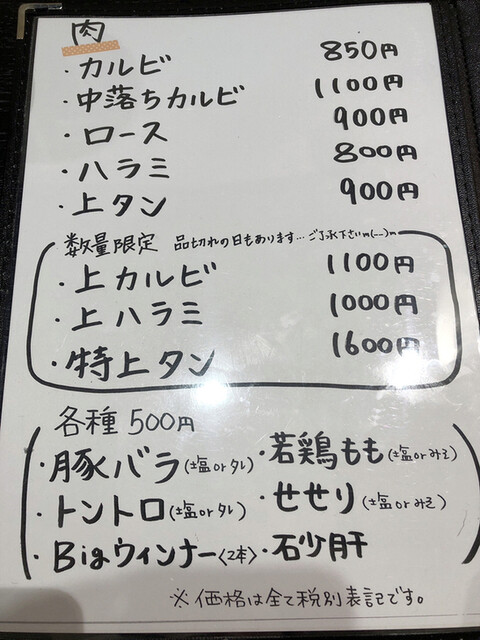 肉
・カルビ 850円
・中落ちカルビ 1100円
・ロース 900円
・ハラミ 800円
・上タン 900円
数量限定 品切れの日もあります…ご了承下さいm(__)m
・上カルビ 1100円
・上ハラミ 1000円
・特上タン 1600円
各種500円
・豚バラ(塩orタレ) ・若鶏もも(塩orみそ)
・トントロ(塩orタレ) ・せせり(塩orみそ)
・Bigウィンナー<2本> ・砂肝
※価格は全て税別表記です。